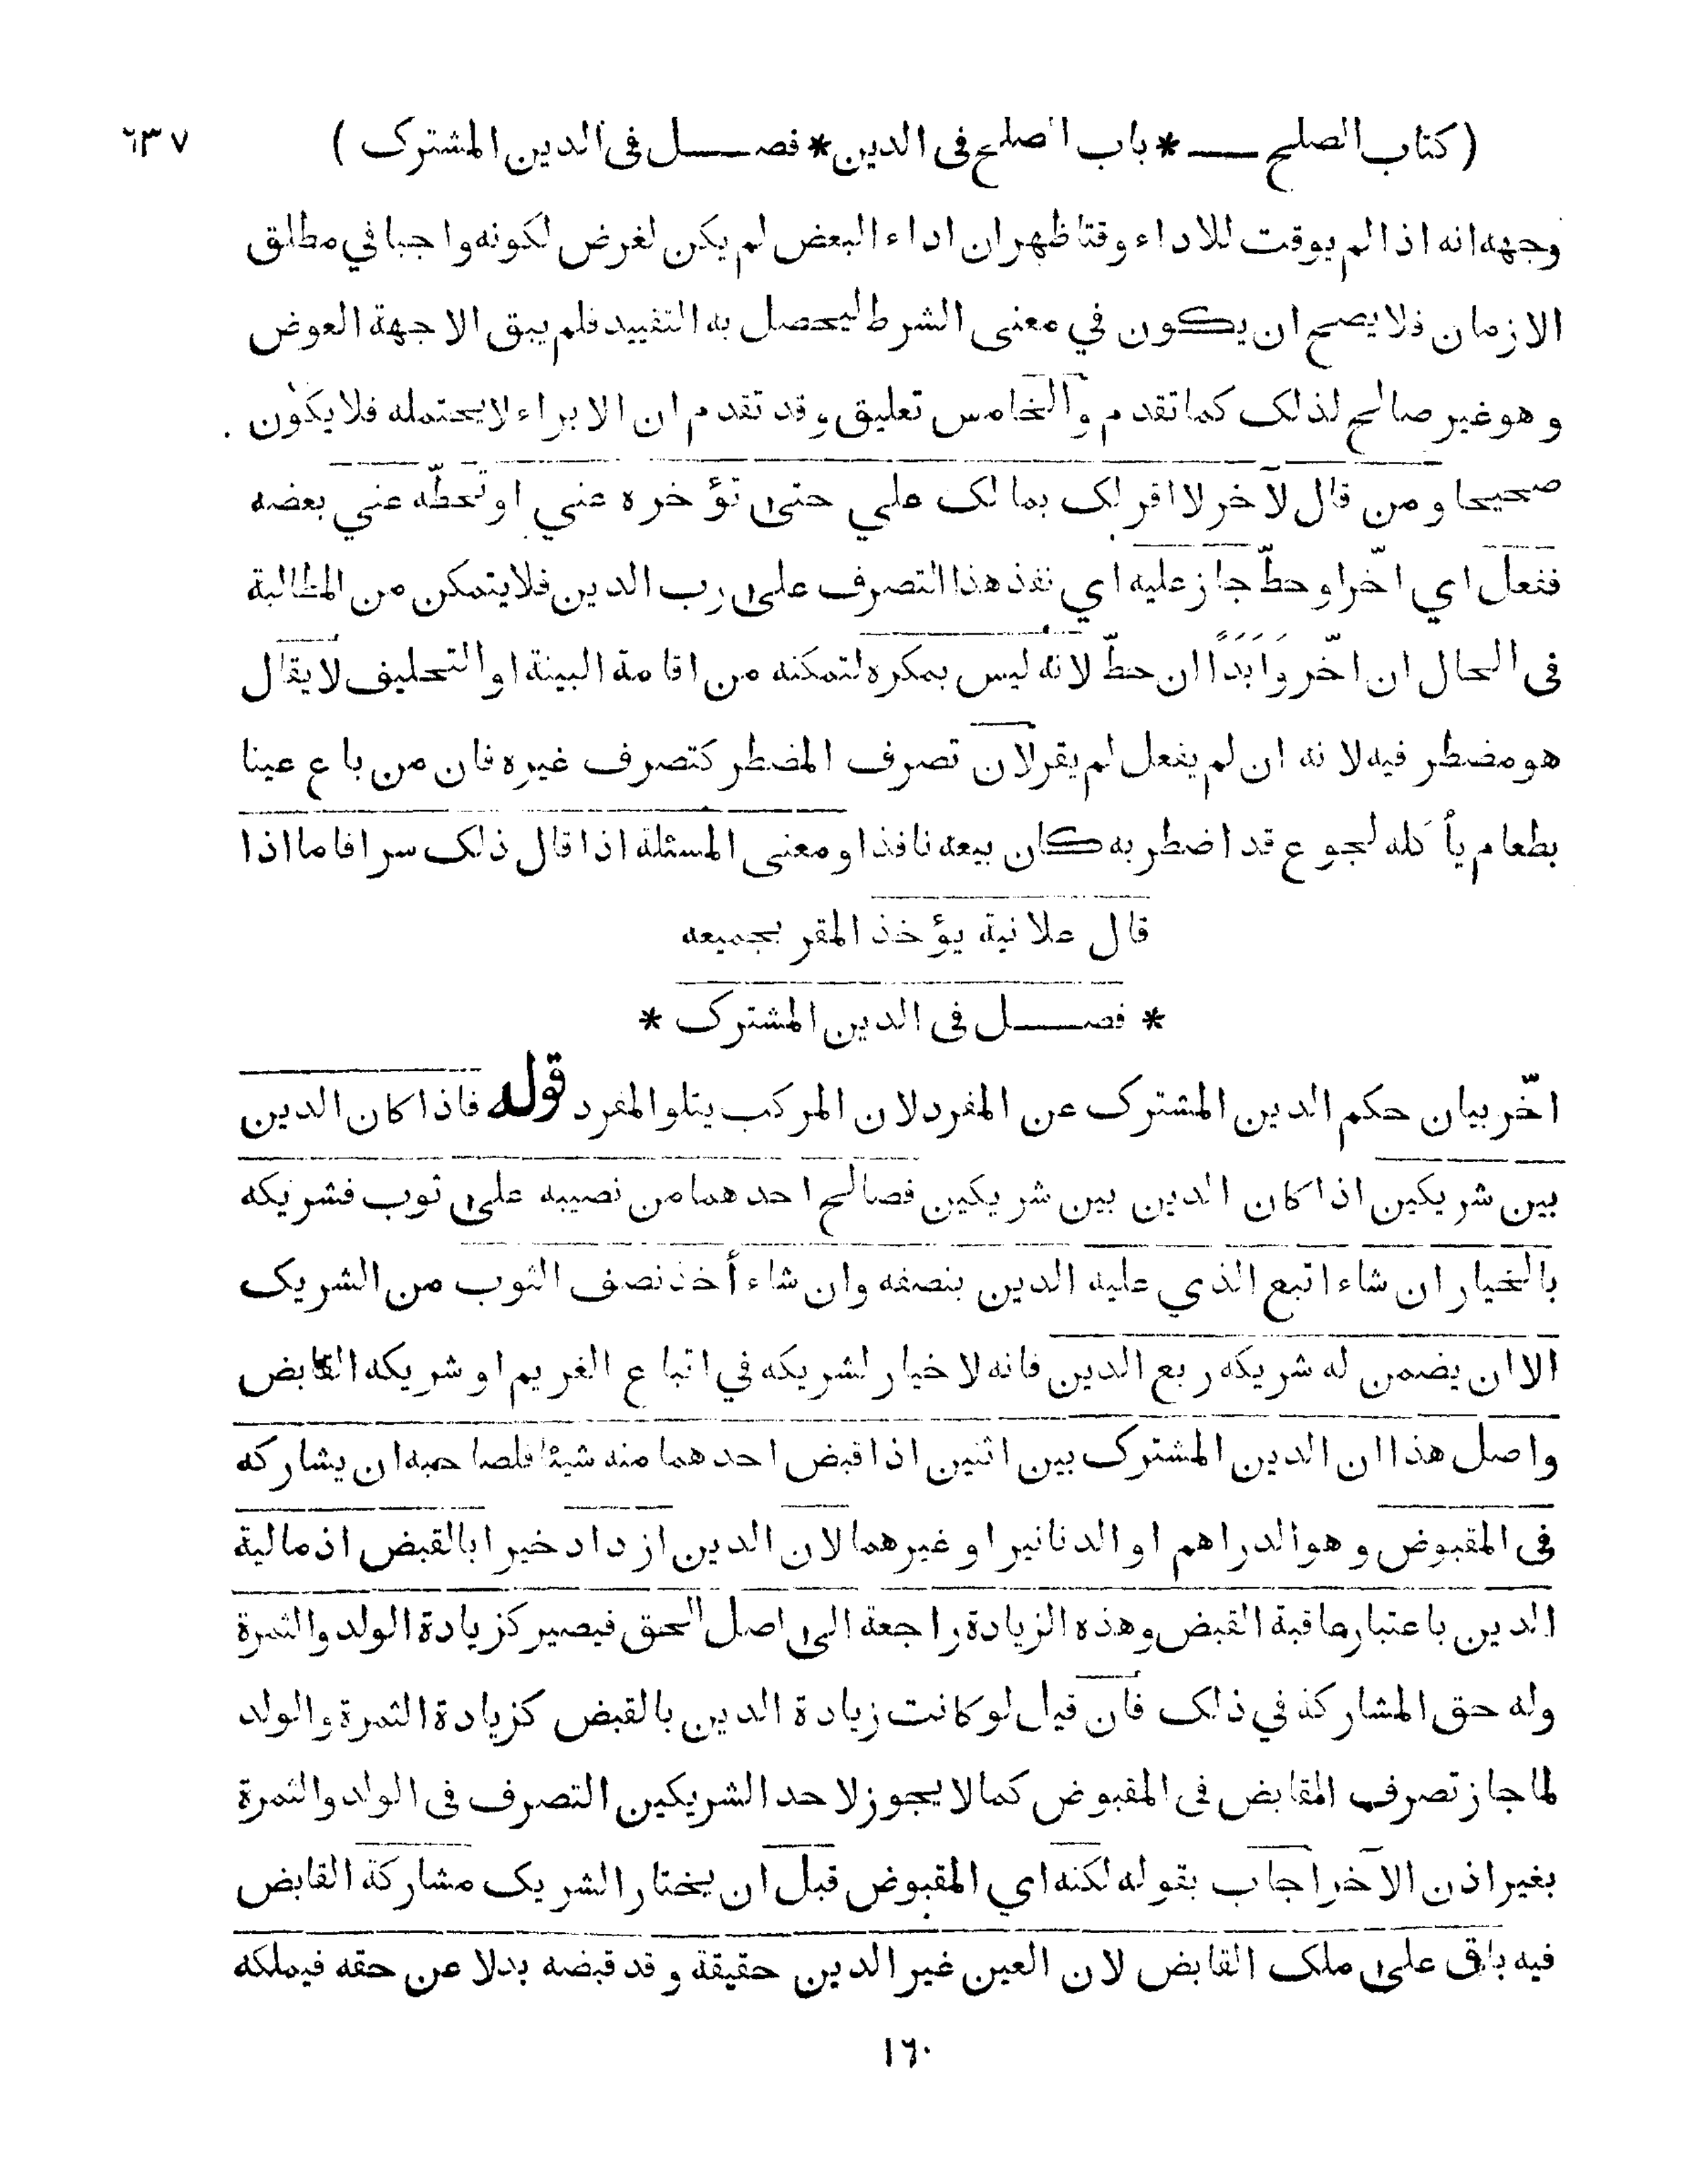 (كتاب الصلح * باب الصلح فى الدين * فصل فى الدين المشترك) ٦٣٧
وجهه انه اذا لم يوقت للاداء وقتا ظهر ان اداء البعض لم يكن لغرض لكونه واجبا في مطلق
الازمان فلا يصح ان يكون في معنى الشرط ليحصل به التقييد فلم يبق الا جهة العوض
وهو غير صالح لذلك كما تقدم والخامس تعليق وقد تقدم ان الابراء لا يحتمله فلا يكون
صحيحا ومن قال لآخر لا اقر لك بما لك علي حتى تؤخره عني او تحطّه عني بعضه
ففعل اي اخّر او حطّ جاز عليه اي نفذ هذا التصرف على رب الدين فلا يتمكن من المطالبة
فى الحال ان اخّر وَاَبَدًا ان حطّ لانه ليس بمكره لتمكنه من اقامة البينة او التحليف لا يقال
هو مضطر فيه لانه ان لم يفعل لم يقر لان تصرف المضطر كتصرف غيره فان من باع عينا
بطعام يأكله لجوع قد اضطر به كان بيعه نافذا ومعنى المسئلة اذا قال ذلك سرا فاما اذا
قال علانية يؤخذ المقر بجميعه
* فصل فى الدين المشترك *
اخّر بيان حكم الدين المشترك عن المفرد لان المركب يتلو المفرد قوله فاذا كان الدين
بين شريكين اذا كان الدين بين شريكين فصالح احدهما من نصيبه على ثوب فشريكه
بالخيار ان شاء اتبع الذي عليه الدين بنصفه وان شاء أخذ نصف الثوب من الشريك
الا ان يضمن له شريكه ربع الدين فانه لا خيار لشريكه في اتباع الغريم او شريكه القابض
واصل هذا ان الدين المشترك بين اثنين اذا قبض احدهما منه شيئا فلصاحبه ان يشاركه
فى المقبوض وهو الدراهم او الدنانير او غيرهما لان الدين ازداد خيرا بالقبض اذ مالية
الدين باعتبار عاقبة القبض وهذه الزيادة راجعة الى اصل الحق فيصير كزيادة الولد والثمرة
وله حق المشاركة في ذلك فان قيل لو كانت زيادة الدين بالقبض كزيادة الثمرة والولد
لما جاز تصرف القابض فى المقبوض كما لا يجوز لاحد الشريكين التصرف فى الولد والثمرة
بغير اذن الآخر اجاب بقوله لكنه اي المقبوض قبل ان يختار الشريك مشاركة القابض
فيه باق على ملك القابض لان العين غير الدين حقيقة وقد قبضه بدلا عن حقه فيملكه
١٦٠